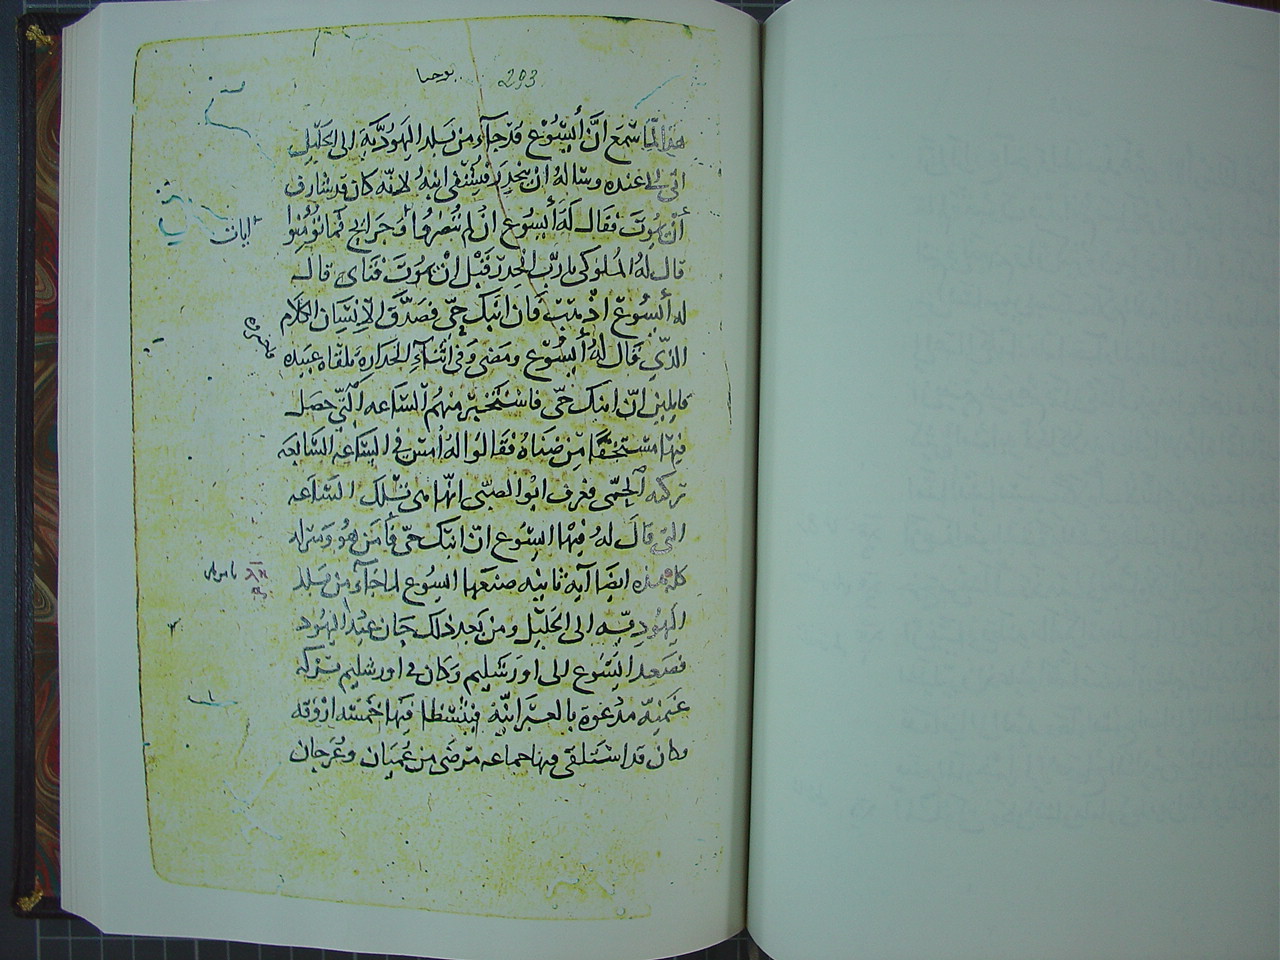 يوحنا 293
هذا لمّا سَمعَ انَّ أيسُوْع قَد جآءَ مِن بَلد اليَهُودُيَّةِ الى الجَليْلِ
اتى الى عنده وساله ان ينحدِرَ فيشفى ابنهُ لانّه كان قد شارف
أنْ يموتَ فقال لهَ أيسُوع انْ لم تُبصرُوا وجرايح فما تُؤمِنُوا
ايات
قال لهُ المُلوكى يا ربّ انحدِر قَبْل انْ يموتَ فتاى قال
له أيسُوع اذهبْ فان ابنك حىّ فصَدَّق الانسان الكلام
الذّي قال لهُ أيسُوْع ومضى وفى اثنآءِ انحداره تلقاه عبيده
قايلين انّ ابنك حىّ فاستخبرَ منهمُ السّاعه الّتي حصَل
فيها مستخفًّا مِّن ضناهُ فقَالوا لهُ امْس في السّاعَه السّابعَه
تركته الحِمّى فعرف ابُوا الصبّى انّها هى تلك السَّاعه
التي قالَ لهُ فيها ايسُوع انّ ابنك حىّ فأمَن هوُ وَمنزله
كله هذه ايضًا آيه ثانيه صنعَها ايسُوع لما جآءَ من بَلد
اليهُوديّه الى الجَليْل ومن بَعد ذلك حَان عيْد اليهُود
فصَعد ايسُوع الى اورَشَليم وكان في اورشليم بركه
غنميّه مدعُوة بالعبرَانيّه فيها خمْسَه ازوقه
وكان قد استلقى فيها جماعه مرضَى من عُميَان وعُرجَان